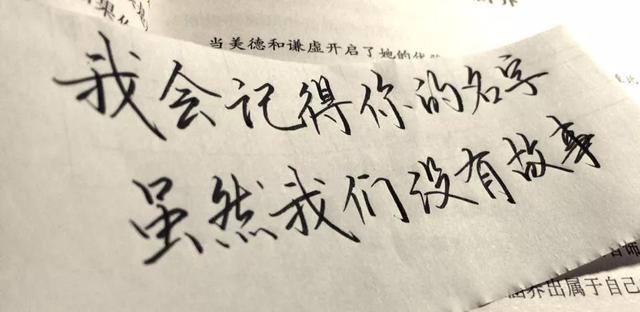 当美德和谦虚开启了她的
我会记得你的名字
虽然我们没有故事
出属于自己